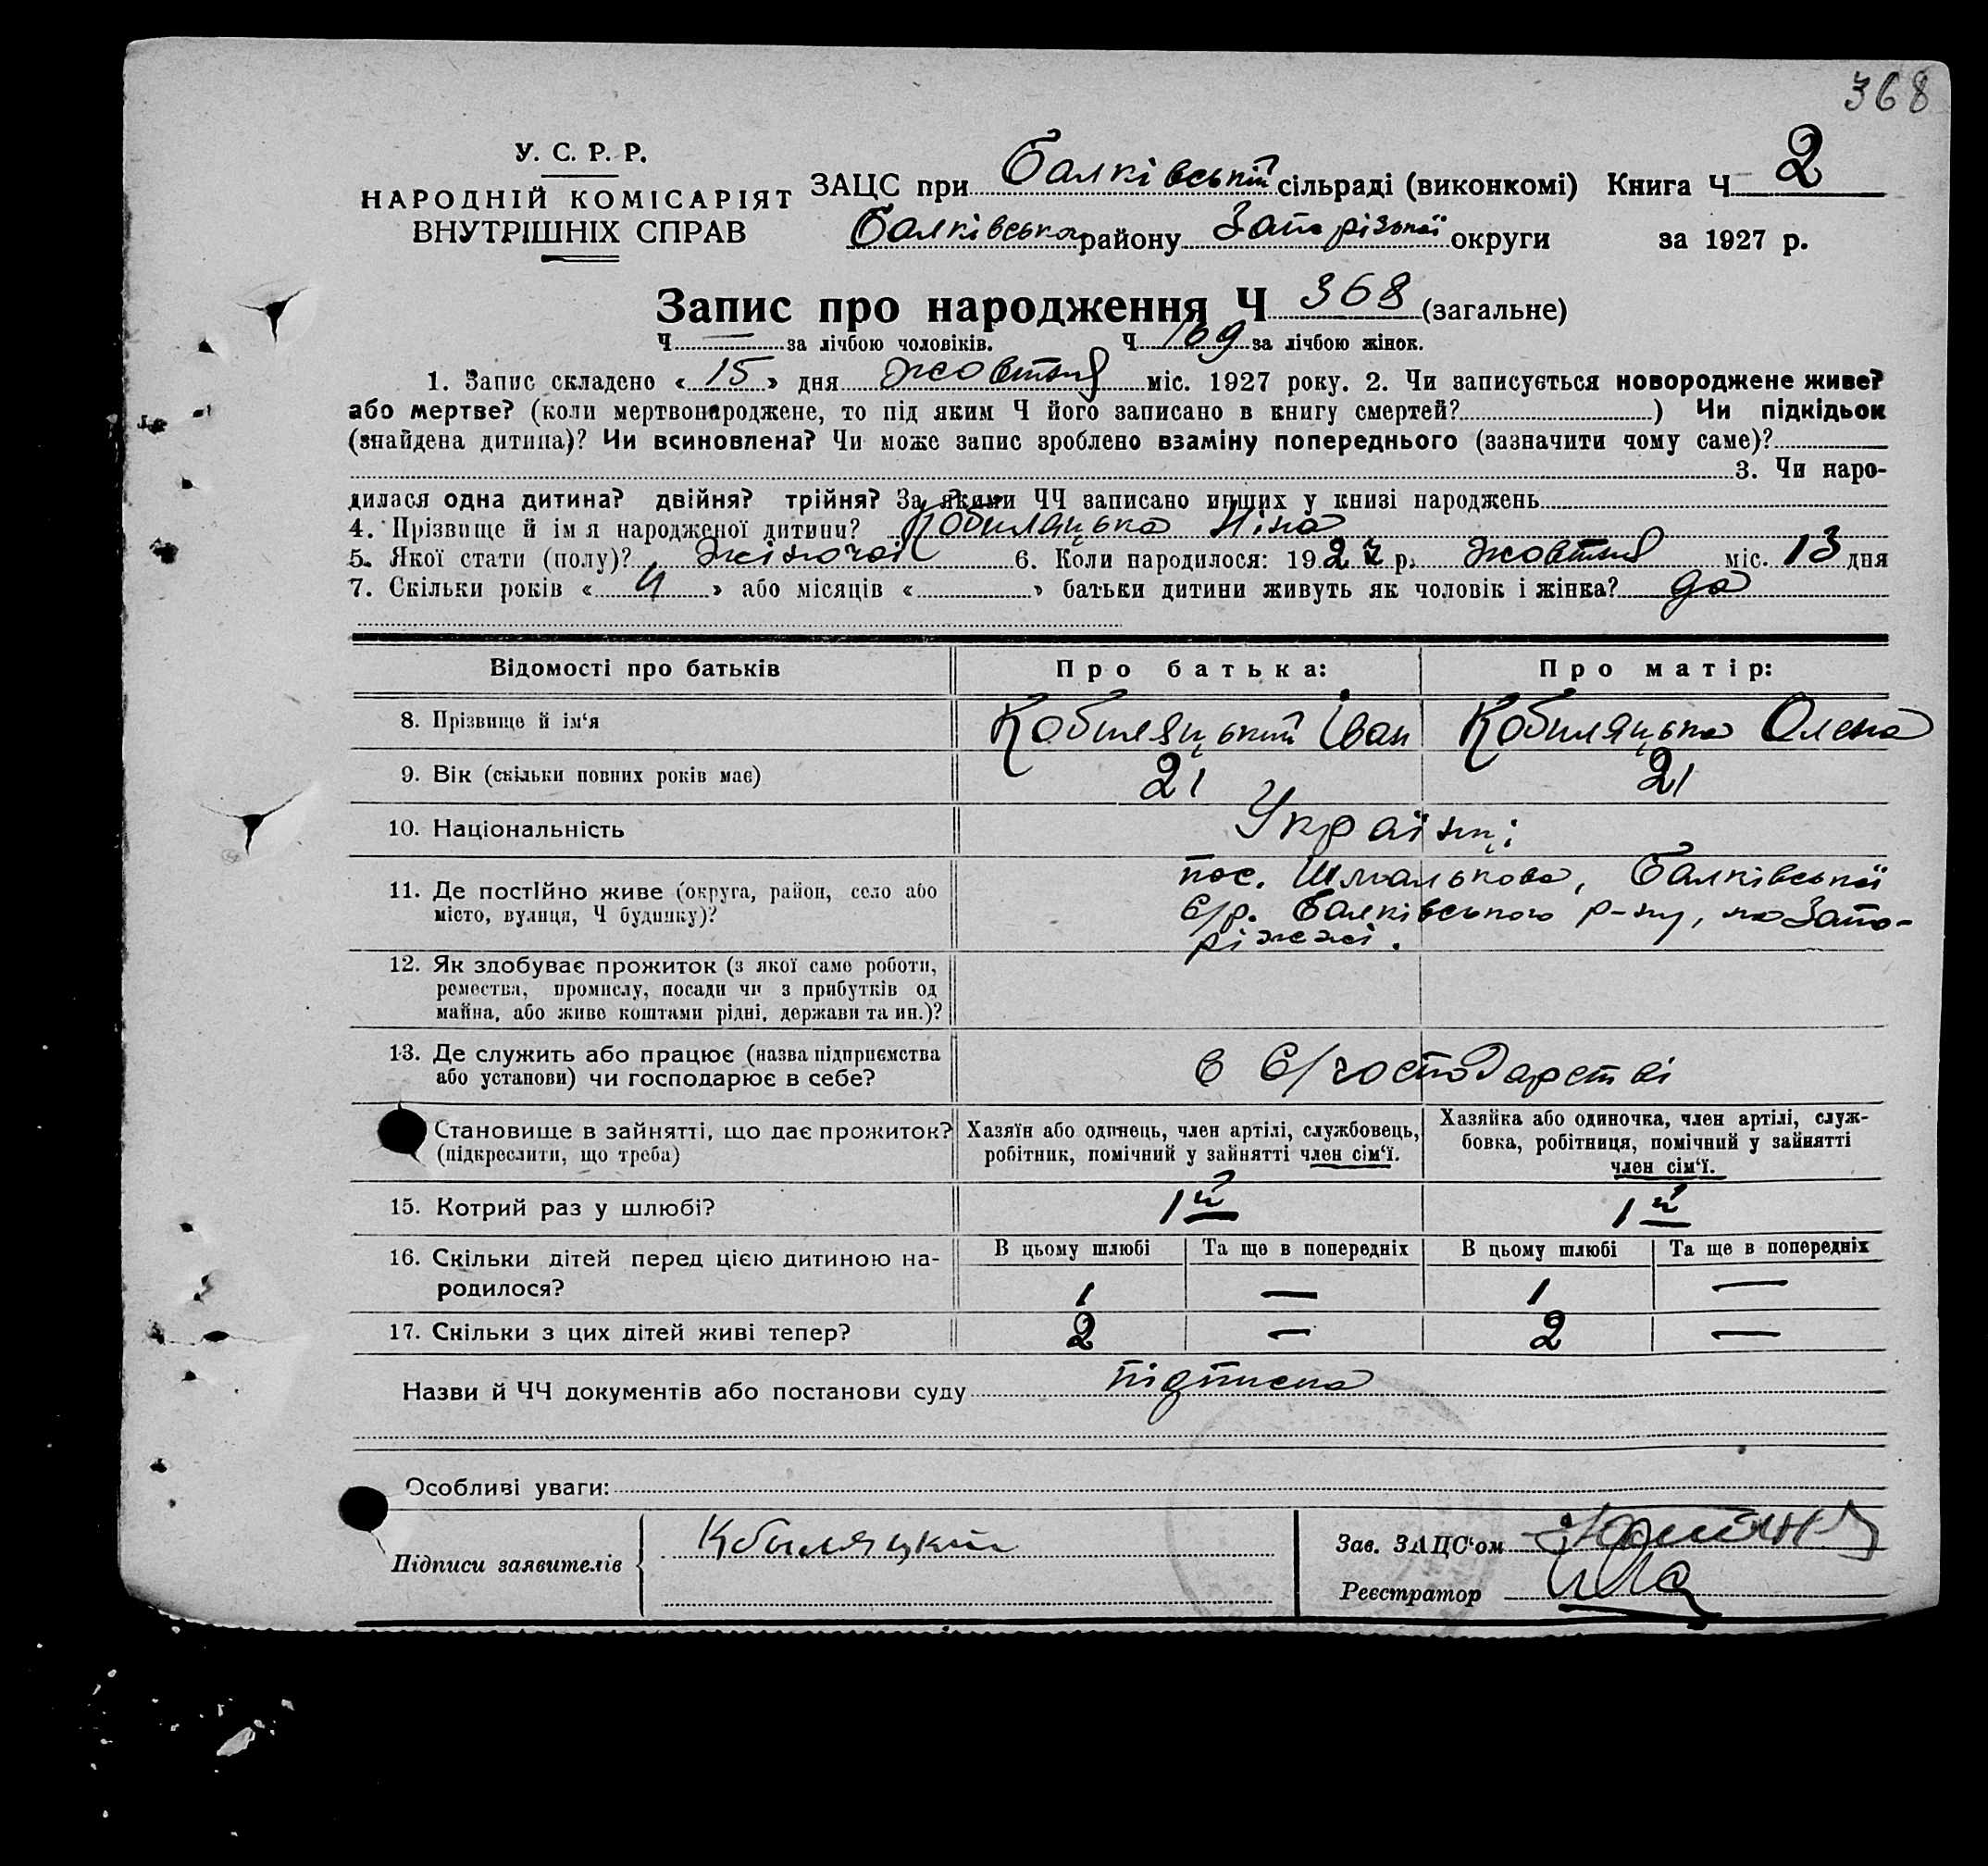 368
У. С. Р. Р.
НАРОДНІЙ КОМІСАРІЯТ
ВНУТРІШНІХ СПРАВ
ЗАЦС при Балківській сільраді (виконкомі) Книга Ч 2
Балківська району Запорізької округи за 1927 р.
Запис про народження Ч 368 (загальне)
Ч — за лічбою чоловіків. Ч 169 за лічбою жінок.
1. Запис складено « 15 » дня жовтня міс. 1927 року. 2. Чи записується новороджене живе?
або мертве? (коли мертвонароджене, то під яким Ч його записано в книгу смертей? ) Чи підкідьок
(знайдена дитина)? Чи всиновлена? Чи може запис зроблено взаміну попереднього (зазначити чому саме)?
3. Чи наро-
дилася одна дитина? двійня? трійня? За якими ЧЧ записано инших у книзі народжень
4. Прізвище й ім я народженої дитини? Кобиляцька Ніна
5. Якої стати (полу)? жіночої 6. Коли народилося: 1927 р. жовтня міс. 13 дня
7. Скільки років « 4 » або місяців « » батьки дитини живуть як чоловік і жінка? да
Відомості про батьків Про батька: Про матір:
8. Прізвище й ім‘я Кобиляцький Іван Кобиляцька Олена
9. Вік (скільки повних років має) 21 21
10. Національність Українці
11. Де постійно живе (округа, район, село або
місто, вулиця, Ч будинку)?
пос. Шмалькова, Балківської
с/р. Балківського р-ну, на Запо-
ріжжі.
12. Як здобуває прожиток (з якої саме роботи,
ремества, промислу, посади чи з прибутків од
майна, або живе коштами рідні, держави та ин.)?
13. Де служить або працює (назва підприємства
або установи) чи господарює в себе?
в с/господарстві
Становище в зайнятті, що дає прожиток?
(підкреслити, що треба)
Хазяїн або одинець, член артілі, службовець,
робітник, помічний у зайнятті член сім‘ї.
Хазяйка або одиночка, член артілі, служ-
бовка, робітниця, помічний у зайнятті
член сім‘ї.
15. Котрий раз у шлюбі? 1й 1й
16. Скільки дітей перед цією дитиною на-
родилося?
В цьому шлюбі Та ще в попередніх В цьому шлюбі Та ще в попередніх
1 — 1 —
17. Скільки з цих дітей живі тепер? 2 — 2 —
Назви й ЧЧ документів або постанови суду підписка
Особливі уваги:
Підписи заявителів Кобыляцкий
Зав. ЗАЦС‘ом
Реєстратор